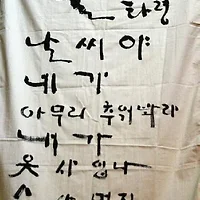 화령
날씨야
네가
아무리 추워봐라
내가
옷 사입나